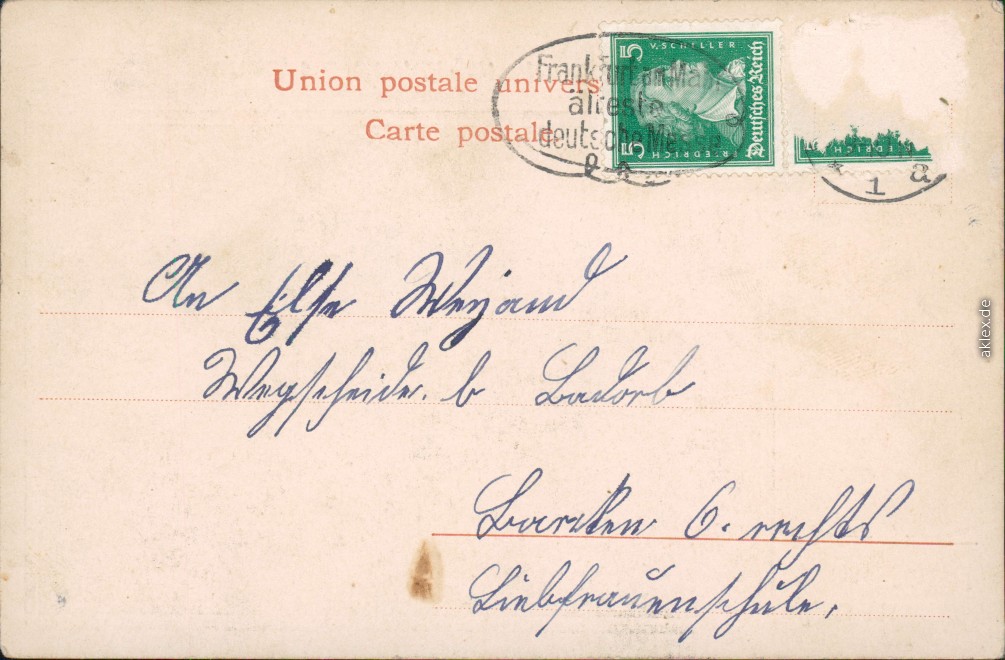 Union postale univers
Carte postale
Frankfurt am Main
älteste
deutsche Me
5 V. SCHILLER
Deutsches Reich
5 FRIEDRICH
EDRICH
* 1 a
An Else Weyand
Wegscheide. b Badorb
Baracken 6. rechts
Liebfrauenschule.
aklex.de